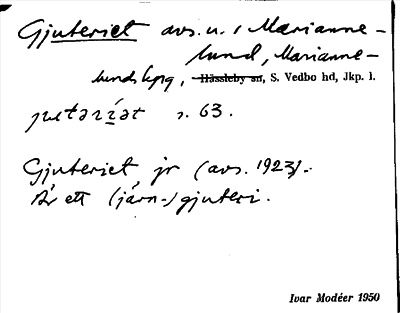 Gjuteriet avs. u. i Marianne-
lund, Marianne-
lunds kpg, Hässleby sn, S. Vedbo hd, Jkp. l.
s. 63.
Gjuteriet, jr (avs. 1923).
Är ett (järn-)gjuteri.
Ivar Modéer 1950